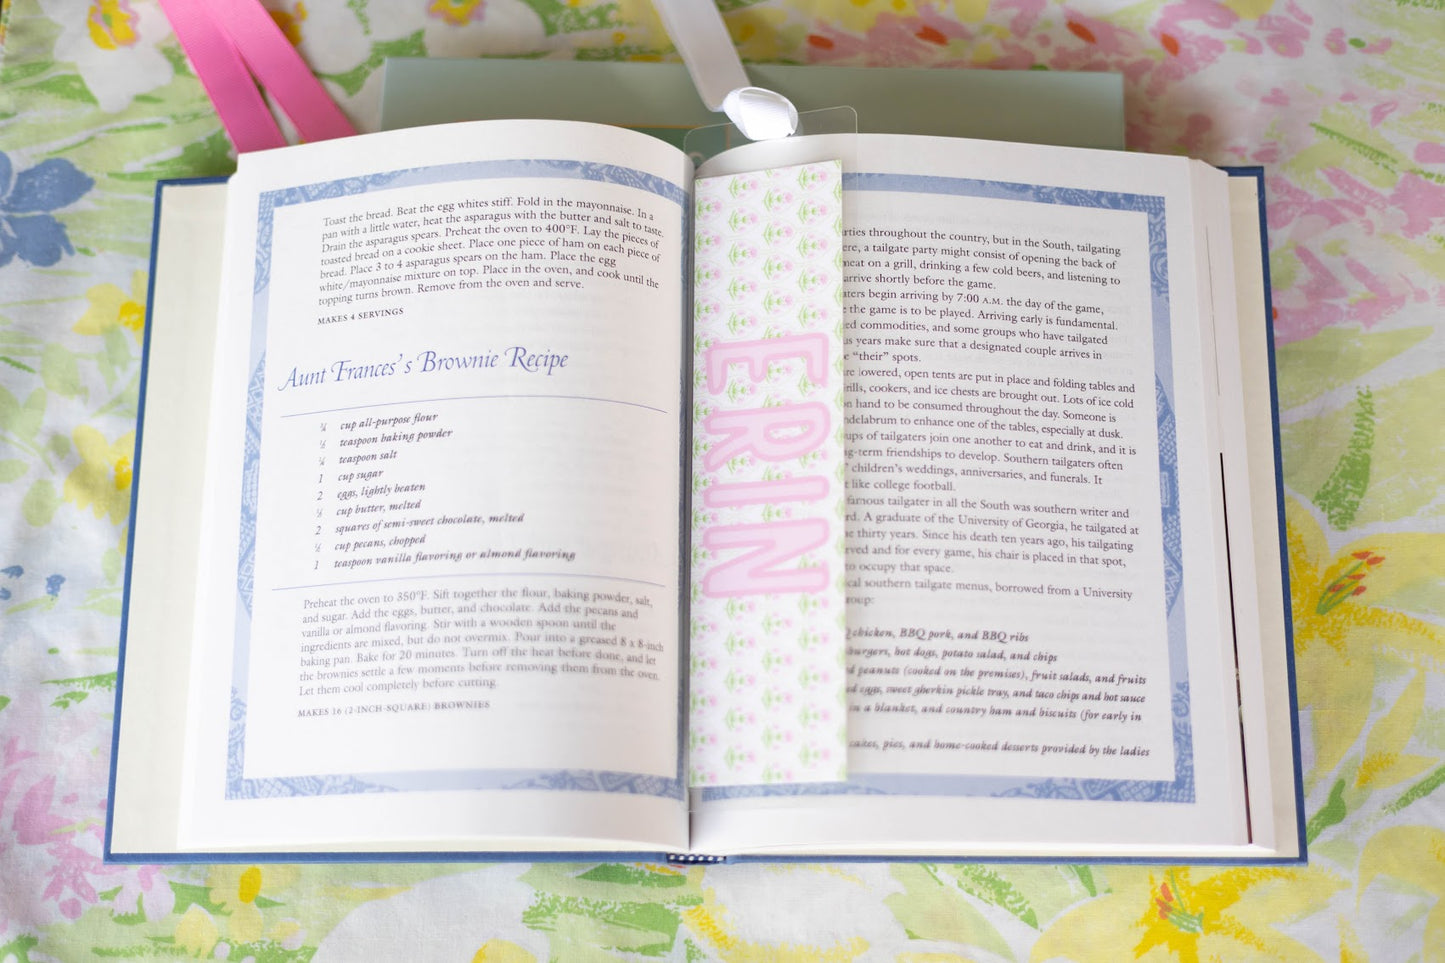 Toast the bread. Beat the egg whites stiff. Fold in the mayonnaise. In a
pan with a little water, heat the asparagus with the butter and salt to taste.
Drain the asparagus spears. Preheat the oven to 400°F. Lay the pieces of
toasted bread on a cookie sheet. Place one piece of ham on each piece of
bread. Place 3 to 4 asparagus spears on the ham. Place the egg
white/mayonnaise mixture on top. Place in the oven, and cook until the
topping turns brown. Remove from the oven and serve.
MAKES 4 SERVINGS
Aunt Frances's Brownie Recipe
cup all-purpose flour
teaspoon baking powder
teaspoon salt
1 cup sugar
2 eggs, lightly beaten
cup butter, melted
2 squares of semi-sweet chocolate, melted
cup pecans, chopped
1 teaspoon vanilla flavoring or almond flavoring
Preheat the oven to 350°F. Sift together the flour, baking powder, salt,
and sugar. Add the eggs, butter, and chocolate. Add the pecans and
vanilla or almond flavoring. Stir with a wooden spoon until the
ingredients are mixed, but do not overmix. Pour into a greased 8 x 8-inch
baking pan. Bake for 20 minutes. Turn off the heat before done, and let
the brownies settle a few moments before removing them from the oven.
Let them cool completely before cutting.
MAKES 16 (2-INCH-SQUARE) BROWNIES
ERIN
throughout the country, but in the South, tailgating
a tailgate party might consist of opening the back of
on a grill, drinking a few cold beers, and listening to
arrive shortly before the game.
begin arriving by 7:00 A.M. the day of the game,
the game is to be played. Arriving early is fundamental.
commodities, and some groups who have tailgated
years make sure that a designated couple arrives in
"their" spots.
lowered, open tents are put in place and folding tables and
cookers, and ice chests are brought out. Lots of ice cold
hand to be consumed throughout the day. Someone is
to enhance one of the tables, especially at dusk.
of tailgaters join one another to eat and drink, and it is
friendships to develop. Southern tailgaters often
children's weddings, anniversaries, and funerals. It
like college football.
famous tailgater in all the South was southern writer and
A graduate of the University of Georgia, he tailgated at
thirty years. Since his death ten years ago, his tailgating
and for every game, his chair is placed in that spot,
to occupy that space.
southern tailgate menus, borrowed from a University
chicken, BBQ pork, and BBQ ribs
hot dogs, potato salad, and chips
peanuts (cooked on the premises), fruit salads, and fruits
eggs, sweet gherkin pickle tray, and taco chips and hot sauce
in a blanket, and country ham and biscuits (for early in
cakes, pies, and home-cooked desserts provided by the ladies